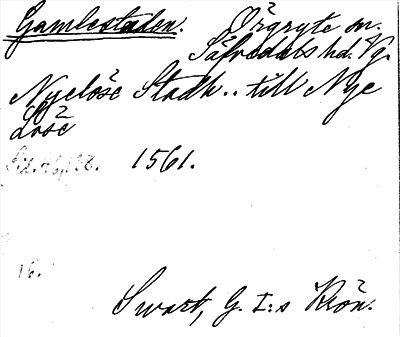 Gamlestaden. Örgryte sn.
Sävedals hd. Vg.
Nyelöße Stadh.. till Nye
Löße
Sid. 46, 128. 1561.
16.
Swart, G. I:s Krön.